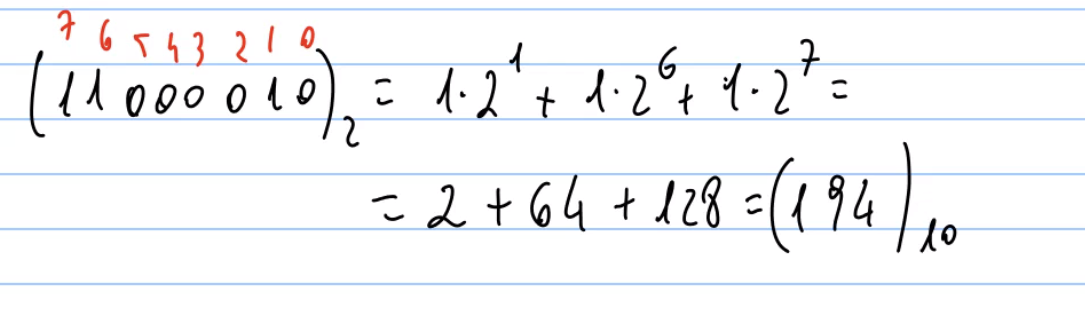 7 6 5 4 3 2 1 0
(11000010)₂ = 1·2¹ + 1·2⁶ + 1·2⁷ =
= 2 + 64 + 128 = (194)₁₀